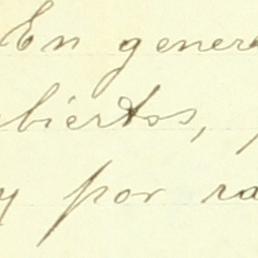 En gener
biertos,
y por ra